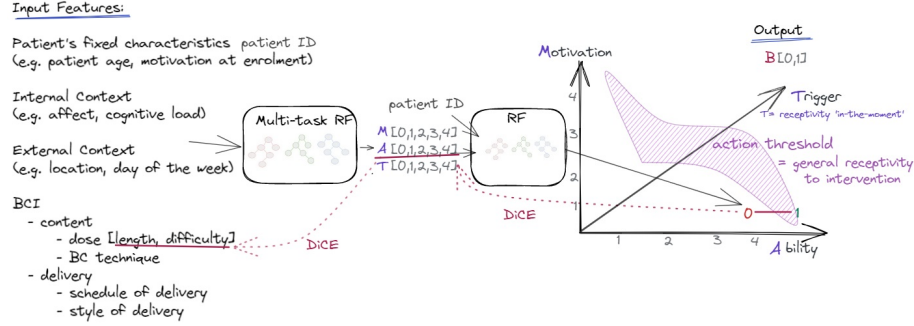 Input Features:
Patient's fixed characteristics patient ID
(e.g. patient age, motivation at enrolment)
Internal Context
(e.g. affect, cognitive load)
External Context
(e.g. location, day of the week)
BCI
- content
- dose [length, difficulty]
- BC technique
- delivery
- schedule of delivery
- style of delivery
Multi-task RF
DiCE
patient ID
M [0,1,2,3,4]
A [0,1,2,3,4]
T [0,1,2,3,4]
RF
DiCE
Motivation
4
3
2
1
1 2 3 4
Ability
0 1
Trigger
T= receptivity 'in-the-moment'
action threshold
= general receptivity
to intervention
Output
B [0,1]